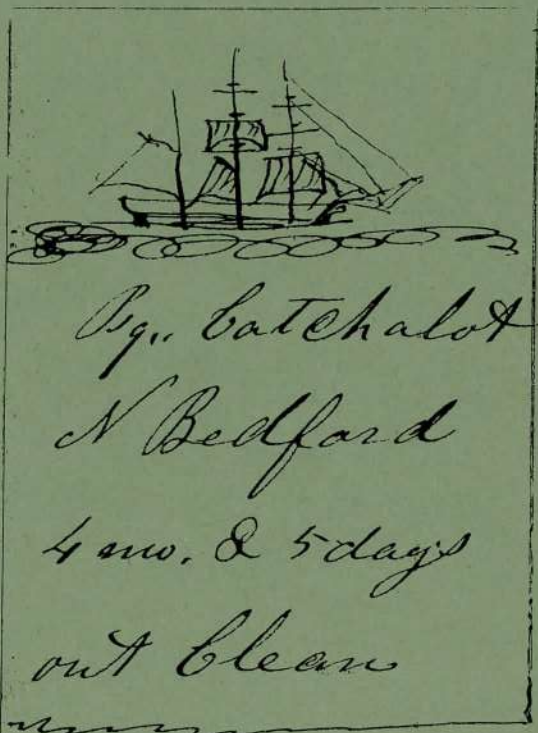 Bq,, Catchalot
N Bedford
4 mo. & 5 days
out Clean